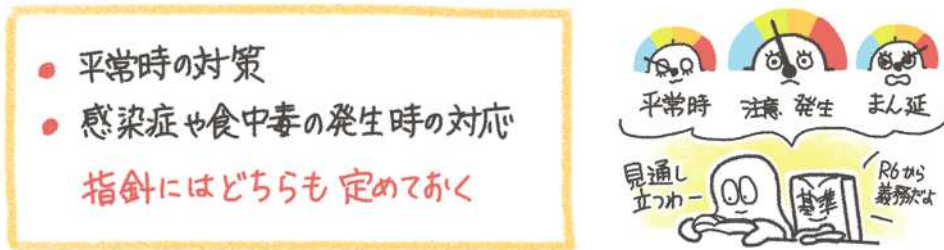 • 平常時の対策
• 感染症や食中毒の発生時の対応
指針にはどちらも定めておく
平常時
注意 発生
まん延
見通し
立つわー
基準
R6から
義務だよ